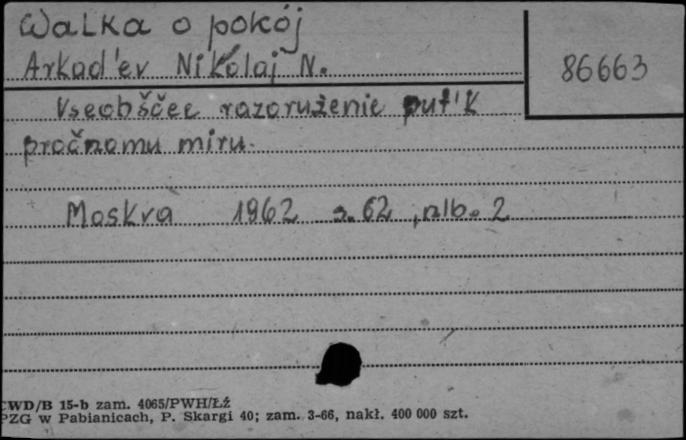 Walka o pokój
Arkad'ev Nikolaj N.
86663
Vseobščee razoruženie put' k
pročnomu miru.
Moskva 1962 s. 62, nlb. 2
CWD/B 15-b zam. 4065/PWH/ŁŹ
PZG w Pabianicach, P. Skargi 40; zam. 3-66, nakł. 400 000 szt.